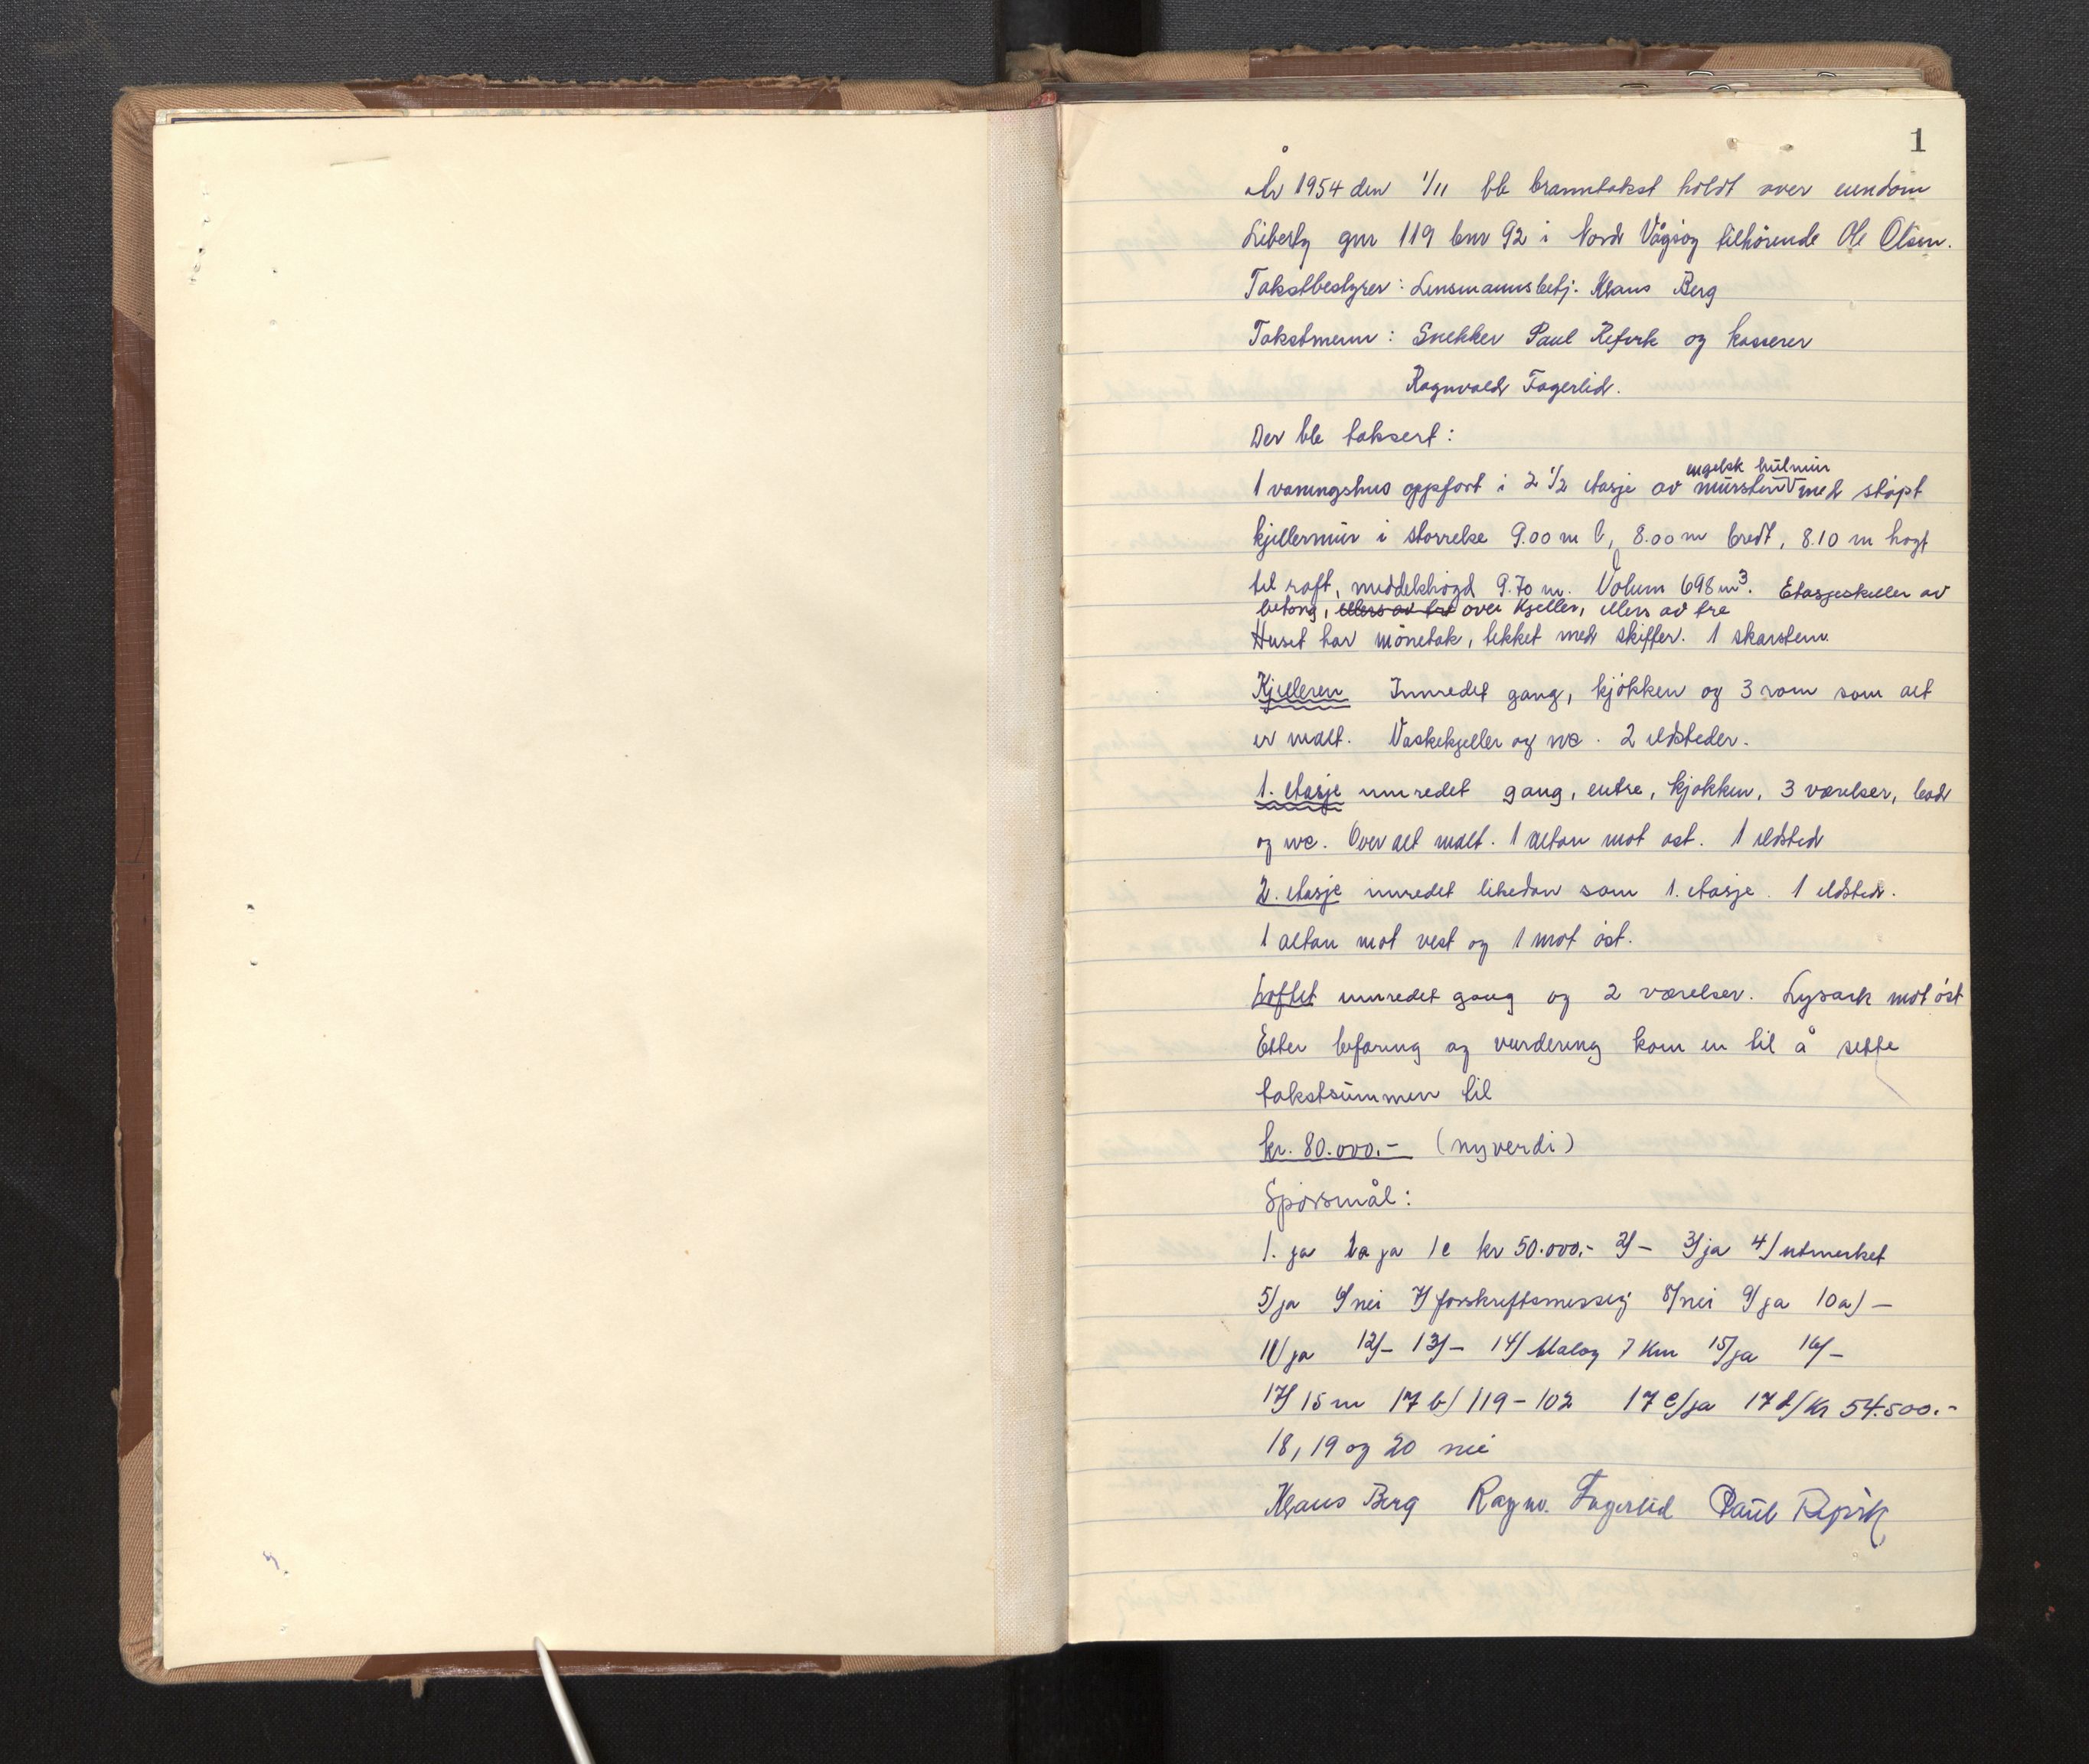 1
År 1954 den 1/11 ble branntakst holdt over eiendom
Liberty gnr 119 bnr 92 i Nord Vågsøy tilhørende Ole Olsen.
Takstbestyrer: Lensmannsbetj. Klaus Berg
Takstmenn: Snekker Paul Refvik og kasserer
Ragnvald Fagerlid.
Der ble taksert:
engelsk hulmur
1 vaningshus oppført i 2 1/2 etasje av murstein med støpt
kjellermur i størrelse 9.00 m l, 8.00 m bredt, 8.10 m høgt
til raft, middelshøgd 9.70 m. Volum 698 m³. Etasjeskiller av
betong, ellers av tre over kjeller, ellers av tre
Huset har mønetak, tekket med skiffer. 1 skorstein.
Kjelleren Innredet gang, kjøkken og 3 rom som alt
er malt. Vaskekjeller og wc. 2 ildsteder.
1. etasje innredet gang, entre, kjøkken, 3 værelser, bad
og wc. Over alt malt. 1 altan mot øst. 1 ildsted
2. etasje innredet likedan som 1. etasje. 1 ildsted.
1 altan mot vest og 1 mot øst.
Loftet innredet gang og 2 værelser. Lysark mot øst
Etter befaring og vurdering kom en til å sette
takstsummen til
kr. 80.000.- (nyverdi)
Spørsmål:
1. ja 1a ja 1c kr 50.000.- 2/- 3/ja 4/utmerket
5/ja 6/nei 7/forskriftsmessig 8/nei 9/ja 10a/-
11/ja 12/- 13/- 14/Måløy 7 km 15/ja 16/-
17/15 m 17 b/119-102 17 c/ja 17 d/kr 54.500.-
18, 19 og 20 nei
Klaus Berg Ragnv. Fagerlid Paul Refvik